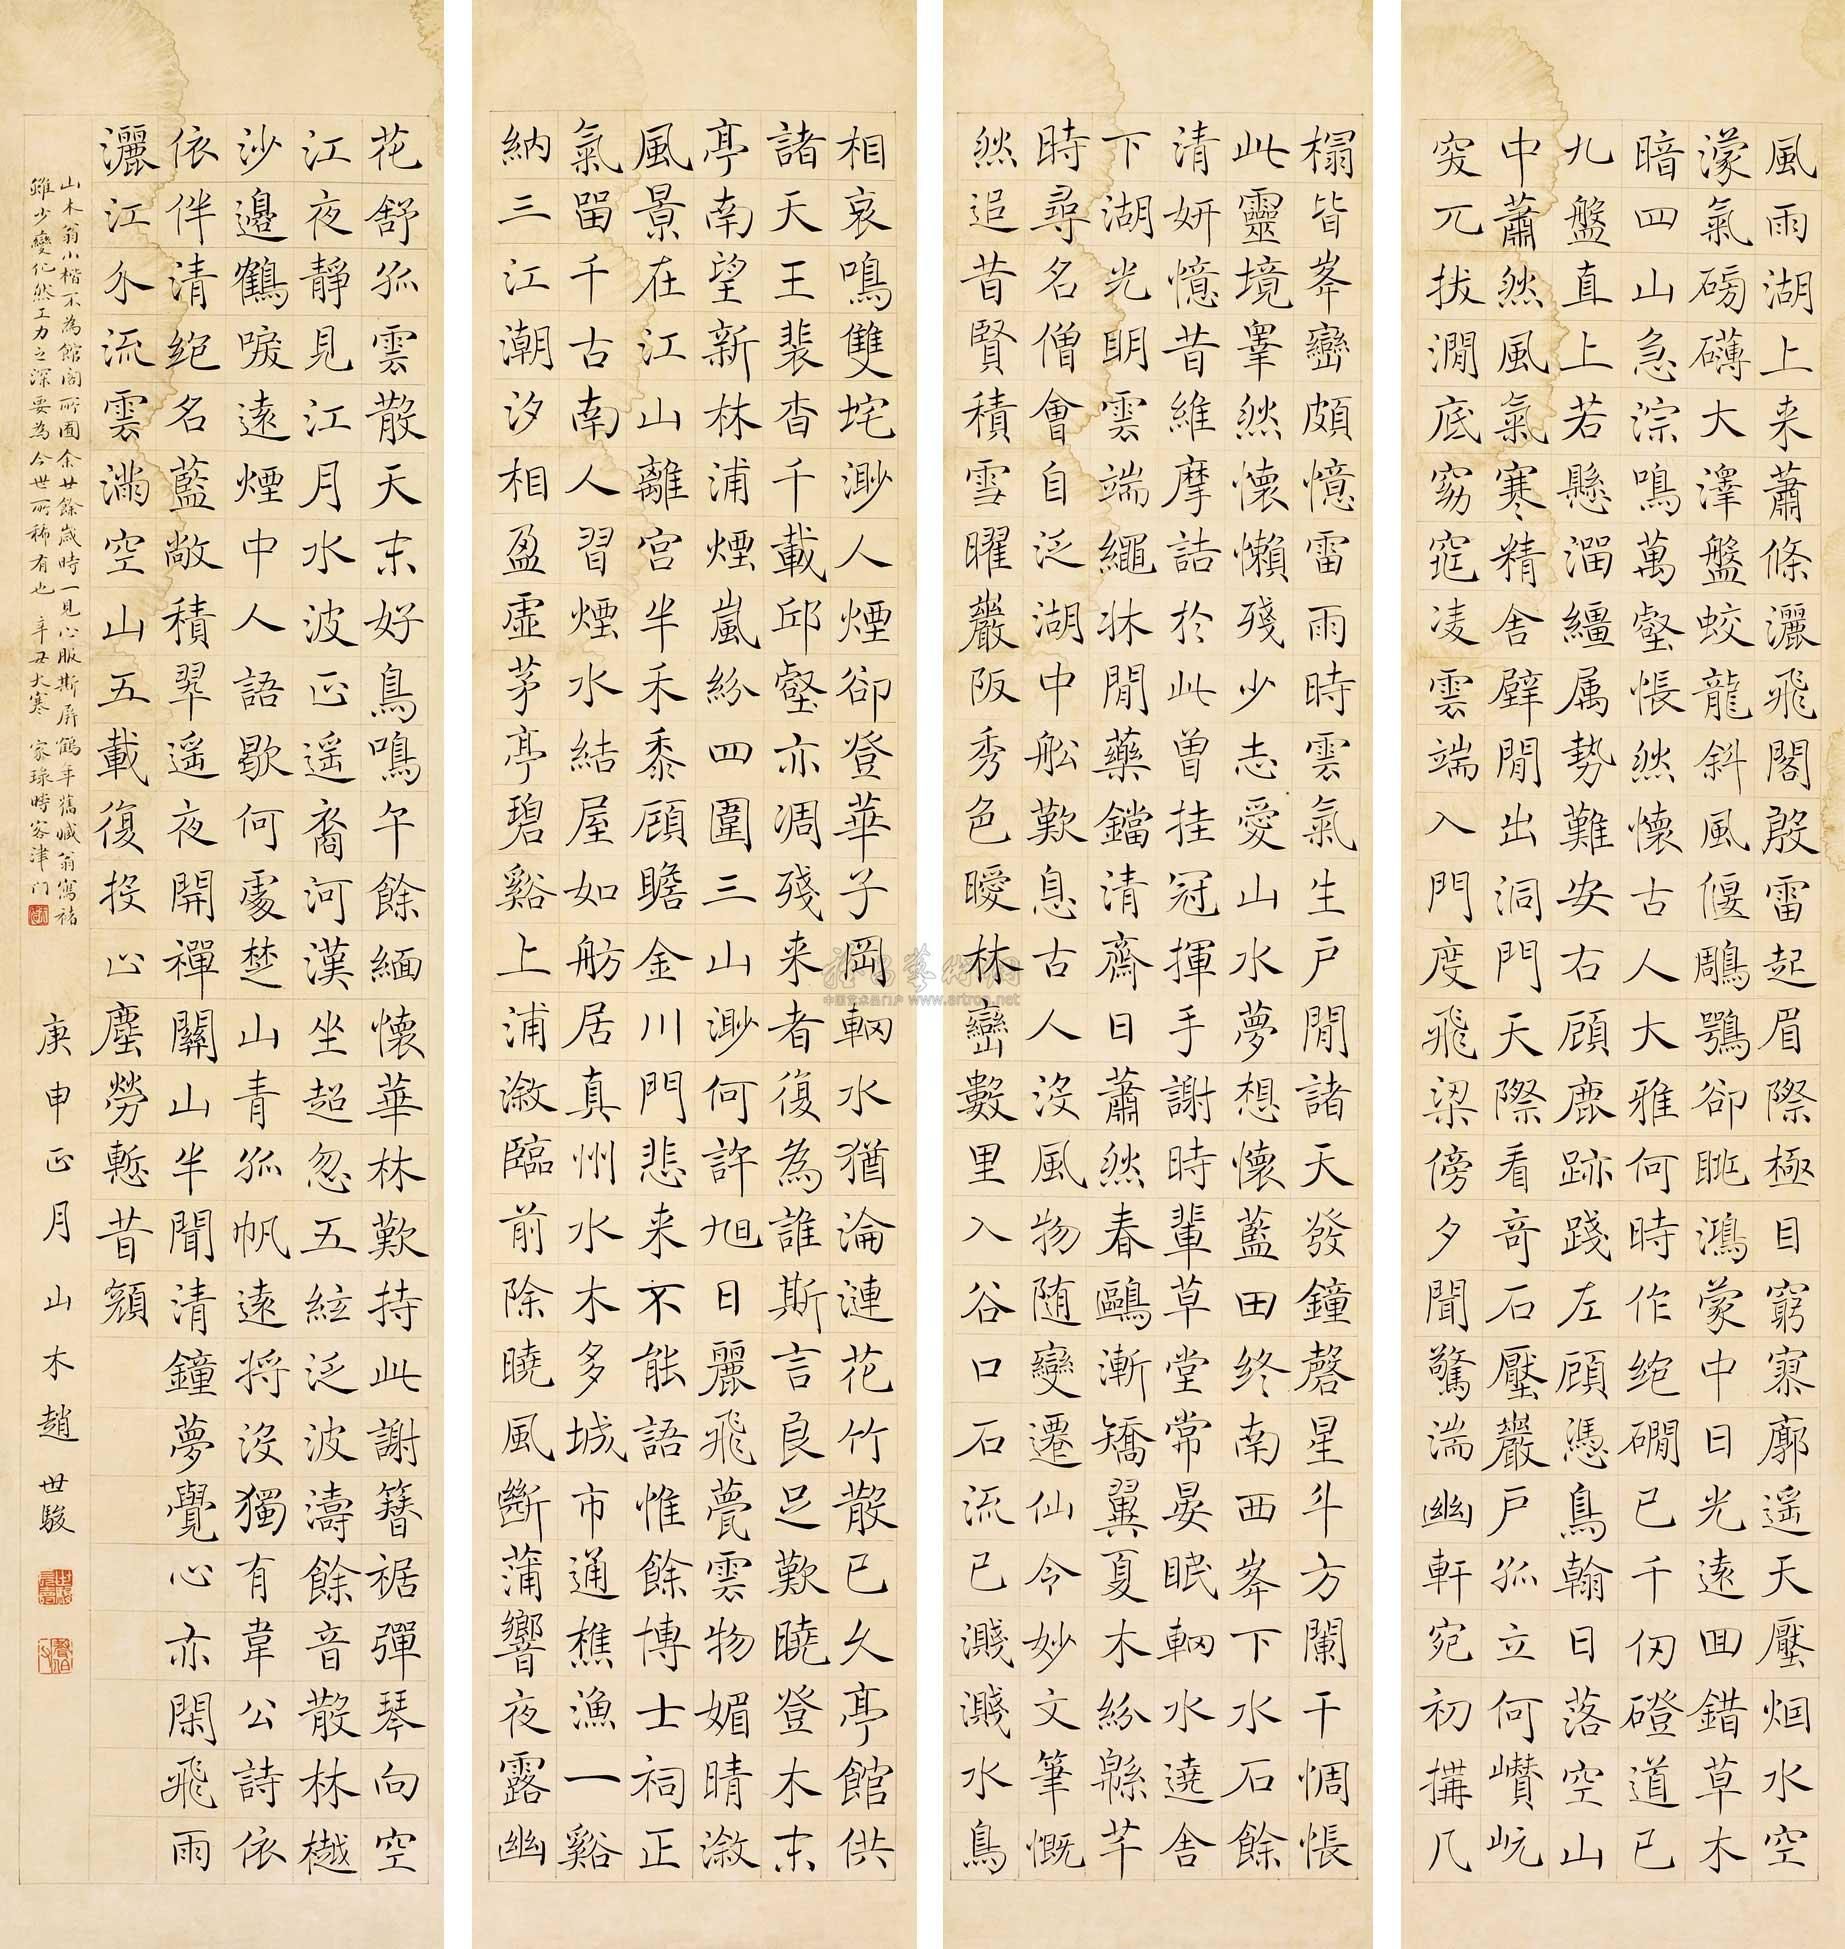 風雨湖上来蕭條灑飛閣殷雷起眉際極目窮寥廓遥天壓烟水空
濛氣磅礴大澤盤蛟龍斜風偃鵰鶚卻眺鴻蒙中日光遠回錯草木
暗四山急淙鳴萬壑悵然懷古人大雅何時作絶磵已千仞磴道已
九盤直上若懸溜繮属勢難安右顧鹿跡踐左顧憑鳥翰日落空山
中蕭然風氣寒精舍闢閒出洞門天際看奇石壓巖戶孤立何巑岏
突兀拔澗底窈窕凌雲端入門度飛梁傍夕聞驚湍幽軒宛初搆几
榻皆峯巒頗憶雷雨時雲氣生戶閒諸天發鐘磬星斗方闌干惆悵
此靈境搴然懷懶殘少志愛山水夢想懷藍田终南西峯下水石餘
清妍憶昔維摩詰於此曽挂冠揮手謝時輩草堂常晏眠輞水遶舍
下湖光明雲端繩牀閒藥鐺清齋日蕭然春鷗漸矯翼夏木紛緜芊
時尋名僧會自泛湖中舩歎息古人没風物随變遷仙令妙文筆慨
然追昔賢積雪曜巖阪秀色曖林巒數里入谷口石流已濺濺水鳥
相哀鳴雙垞渺人煙卻登華子岡輞水猶淪漣花竹散已久亭館供
諸天王裴杳千載邱壑亦凋殘来者復為誰斯言良足歎曉登木末
亭南望新林浦煙嵐紛四圍三山渺何許旭日麗飛甍雲物媚晴漵
風景在江山離宮半禾黍顧瞻金川門悲来不能語惟餘博士祠正
氣留千古南人習煙水結屋如舫居真州水木多城市通樵漁一谿
納三江潮汐相盈虚茅亭碧谿上浦漵臨前除曉風斷蒲響夜露幽
花舒孤雲散天末好鳥鳴午餘緬懷華林歎持此謝簪裾彈琴向空
江夜靜見江月水波正遥裔河漢坐超忽五絃泛波濤餘音散林樾
沙邊鶴唳遠煙中人語歇何處楚山青孤帆遠将没獨有韋公詩依
依伴清絶名藍敞積翠遥夜開禪關山半聞清鐘夢覺心亦閑飛雨
灑江介流雲滿空山五載復投止塵勞慙昔顏
庚申正月 山木趙世駿
山木翁小楷不為館閣所囿余廿餘歲時一見心服斯屏鶴年舊臧翁寫褚
雖少變化然工力之深要為今世所稀有也 辛丑大寒 家琭時客津门
中国艺术品门户 www.artron.net